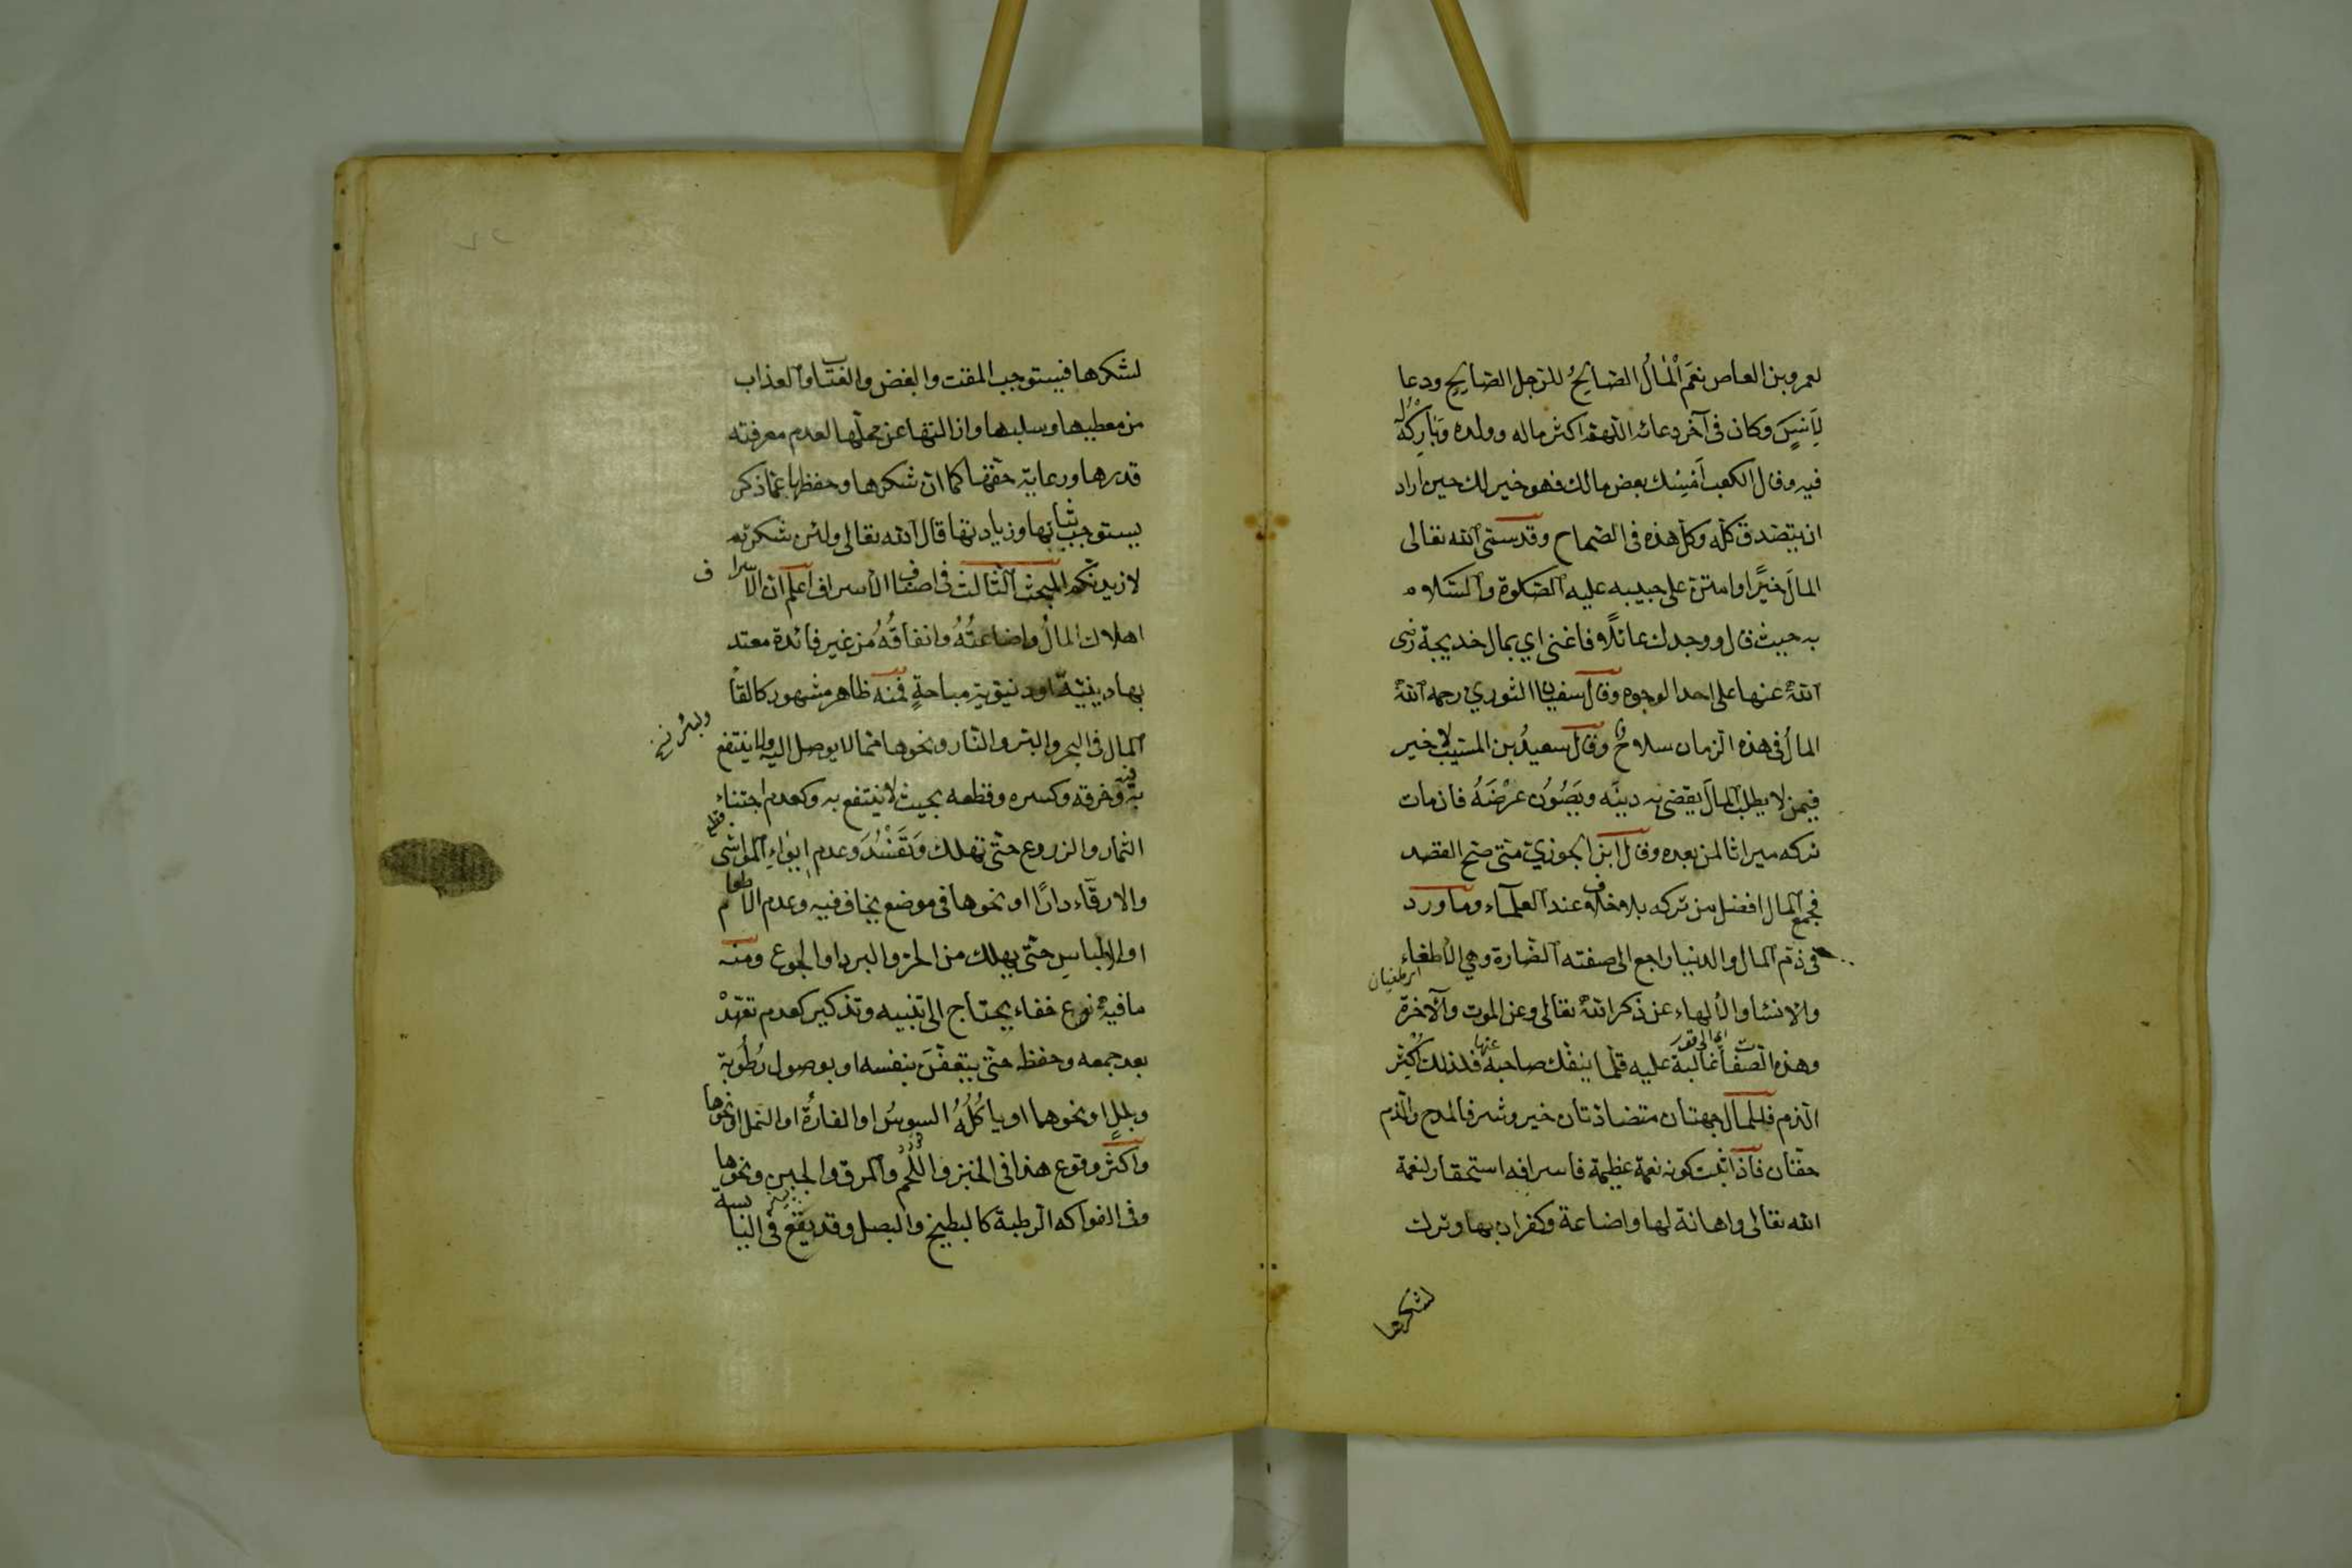 لعمرو بن العاص نعم المال الصالح للرجل الصالح ودعا
لأنس وكان فى آخر دعائه اللهم اكثر ماله وولده وبارك له
فيه وقال لكعب امسك بعض مالك فهو خير لك حين اراد
ان يتصدق كله وكل هذه فى الصحاح وقد سمى الله تعالى
المال خيرا وامتن على حبيبه عليه الصلوة والسلام
به حيث قال ووجدك عائلا فاغنى اي بمال خديجة رضى
الله عنها على احد الوجوه وقال سفيان الثوري رحمه الله
المال فى هذه الزمان سلاح وقال سعيد بن المسيب لا خير
فيمن لا يطلب المال يقضى به دينه ويصون عرضه فان مات
تركه ميراثا لمن بعده وقال ابن الجوزي متى صح القصد
فجمع المال افضل من تركه بلا خلاف عند العلماء وما ورد
فى ذم المال والدنيا راجع الى صفته الضارة وهي الاطغاء
والانساء والالهاء عن ذكر الله تعالى وعن الموت والآخرة
وهذه الصفات غالبة عليه قلما ينفك صاحبه عنها فلذلك كثر
الذم فللمال جهتان متضادتان خير وشر فالمدح والذم
حقان فاذا ثبت كونه نعمة عظيمة فاسرافه استحقار لنعمة
الله تعالى واهانة لها واضاعة وكفران بها وترك
لشكرها
لشكرها فيستوجب المقت والبغض والعتاب والعذاب
من معطيها وسلبها وازالتها عن محلها لعدم معرفته
قدرها ورعاية حقها كما ان شكرها وحفظها عما ذكر
يستوجب ثباتها وزيادتها قال الله تعالى ولئن شكرتم
لازيدنكم المبحث الثالث فى اصناف الاسراف اعلم ان الاسراف
اهلاك المال واضاعته وانفاقه من غير فائدة معتد
بها دينية او دنيوية مباحة فمنه ظاهر مشهور كالقاء
المال فى البحر والبئر والنار ونحوها مما لا يوصل اليه ولا ينتفع
به وخرقه وكسره وقطعه بحيث لا ينتفع به وكعدم اجتناء
الثمار والزروع حتى تهلك وتفسد وعدم ايواء المواشى
والارقاء دارا او نحوها فى موضع يخاف فيه وعدم الاطعام
او الالباس حتى يهلك من الحر والبرد او الجوع ومنه
ما فيه نوع خفاء يحتاج الى تنبيه وتذكير كعدم تعهد
بعد جمعه وحفظه حتى يتعفن بنفسه او بوصول رطوبة
وبلل او نحوهما او ياكله السوس او الفارة او النمل او نحوها
واكثر وقوع هذا فى الخبز واللحم والمرق والجبن ونحوها
وفى الفواكه الرطبة كالبطيخ والبصل وقد يقع فى اليابسة